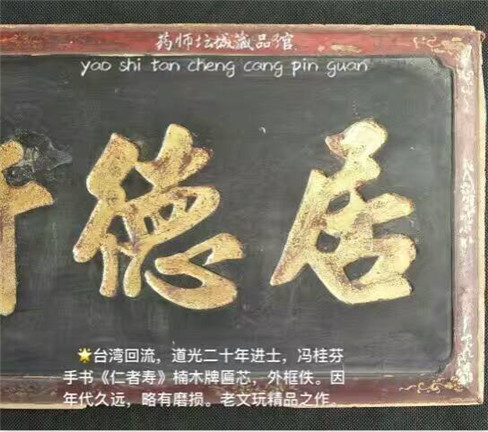 药师坛城藏品馆
yao shi tan cheng cang pin guan
德居
台湾回流，道光二十年进士，冯桂芬
手书《仁者寿》楠木牌匾芯，外框佚。因
年代久远，略有磨损。老文玩精品之作。